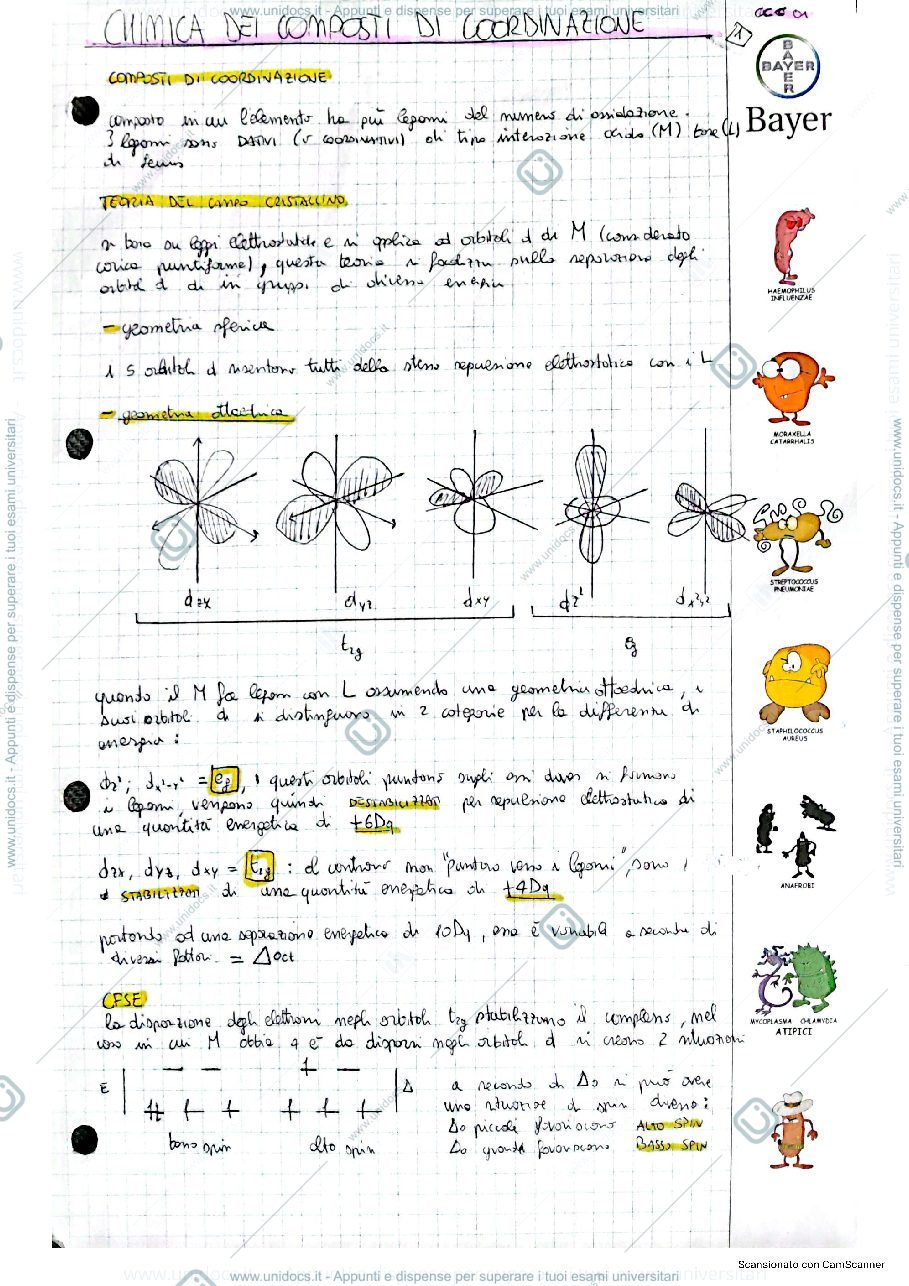 CHIMICA DEI COMPOSTI DI COORDINAZIONE
1
COMPOSTI DI COORDINAZIONE
composto in cui l'elemento ha più legami del numero di ossidazione.
I legami sono DATIVI (o COORDINATIVI) di tipo interazione acido (M) base (L)
di Lewis
TEORIA DEL CAMPO CRISTALLINO
si basa su leggi elettrostatiche e si applica ad orbitali d di M (considerato
carica puntiforme), questa teoria si focalizza sulla separazione degli
orbitali d in gruppi di diversa energia
- geometria sferica
i 5 orbitali d risentono tutti della stessa repulsione elettrostatica con i L
- geometria ottaedrica
dzx dyz dxy dz² dx²-y²
t2g eg
quando il M fa legami con L assumendo una geometria ottaedrica, i
suoi orbitali d si distinguono in 2 categorie per la differente di
energia:
dz²; dx²-y² = eg, questi orbitali puntano sugli assi dove si formano
i legami, vengono quindi DESTABILIZZATI per repulsione elettrostatica di
una quantità energetica di +6Dq
dzx, dyz, dxy = t2g : al contrario non "puntano verso i legami", sono
STABILIZZATI di una quantità energetica di +4Dq
portando ad una separazione energetica di 10Dq, essa è variabile a seconda di
diversi fattori = Δoct
CFSE
la disposizione degli elettroni negli orbitali t2g stabilizzano il complesso, nel
caso in cui M abbia 4 e⁻ da disporsi negli orbitali d si creano 2 situazioni
E Δ
basso spin alto spin
a seconda di Δo si può avere
una situazione di spin diverso:
Δo piccoli favoriscono ALTO SPIN
Δo grandi favoriscono BASSO SPIN
BAYER
BAYER
Bayer
HAEMOPHILUS
INFLUENZAE
MORAXELLA
CATARRHALIS
STREPTOCOCCUS
PNEUMONIAE
STAPHILOCOCCUS
AUREUS
ANAEROBI
MYCOPLASMA CHLAMYDIA
ATIPICI
Scansionato con CamScanner
www.unidocs.it - Appunti e dispense per superare i tuoi esami universitari
www.unidocs.it - Appunti e dispense per superare i tuoi esami universitari
www.unidocs.it - Appunti e dispense per superare i tuoi esami universitari
www.unidocs.it - Appunti e dispense per superare i tuoi esami universitari